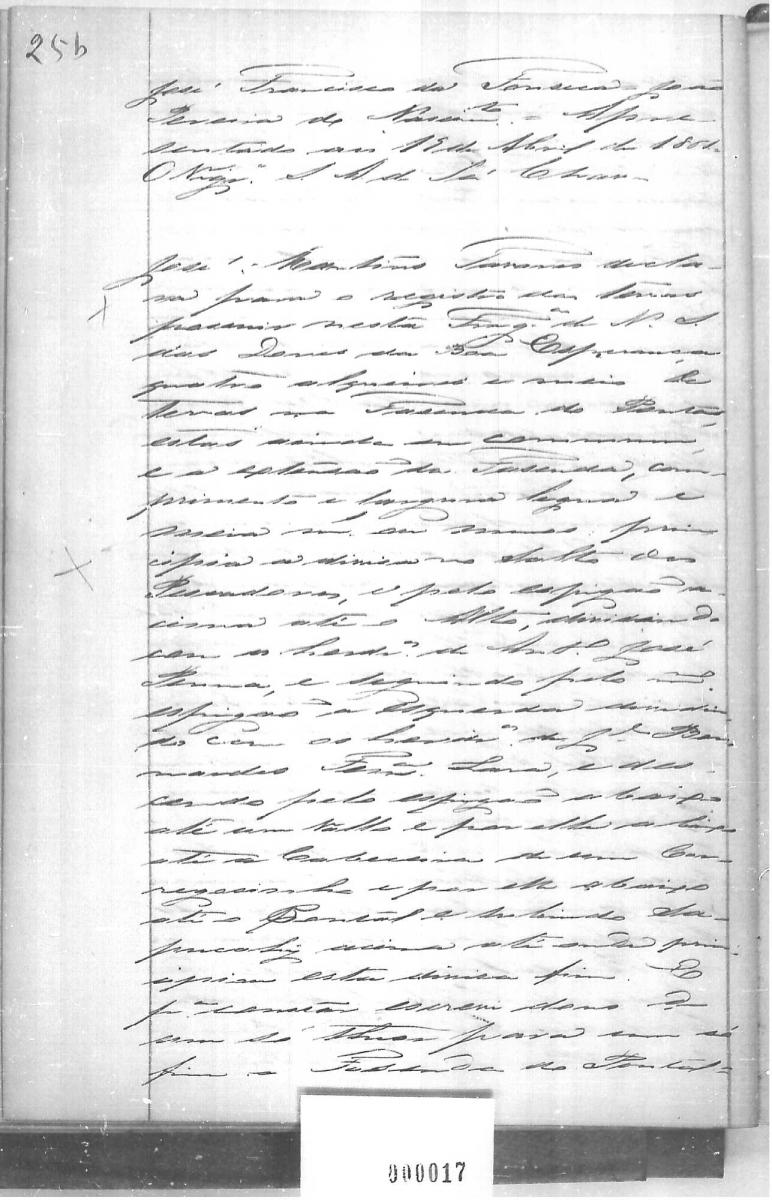 25b
José Francisco da Fonseca João
Pereira do Nascim.to - Apre-
sentado aos 18 de Abril de
O Vigr.o J. M. de Sá Chav
José Martins Tavares decla-
ra para o registro das terras
possuir nesta Freg.a de N. S.
das Dores da Boa Esperança
quatro alqueires e meio de
terras na Fazenda do Pontal,
estas ainda em commum,
e a extensão da Fazenda, com-
primento e largura legua e
meia m. ou menos. prin
cipia a divisa no Salto dos
e pelo espigão a-
cima até o Alto, dividindo
com os herdr.os de Ant.o José
Penna, e seguindo pelo m.mo
espigão a esquerda dividin
do com os herdr.os de J.e Ber
nardes Lara, e des-
cendo pelo espigão abaixo
até um Vallo e por elle abaixo
até a Cabeceira de um Cor-
regosinho e por elle abaixo
até o Pontal e subindo Sa-
pucahy acima até onde prin-
cipiou esta divisa fim. E
p.a constar escrevi dous de
um só theor para um só
fim. Fazenda do Pontal-
000017